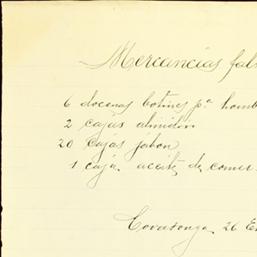 Mercancías fal
6 docenas botines pª homb
2 cajas almidon
20 cajas jabon
1 caja aceite de comer
Covadonga, 26 E